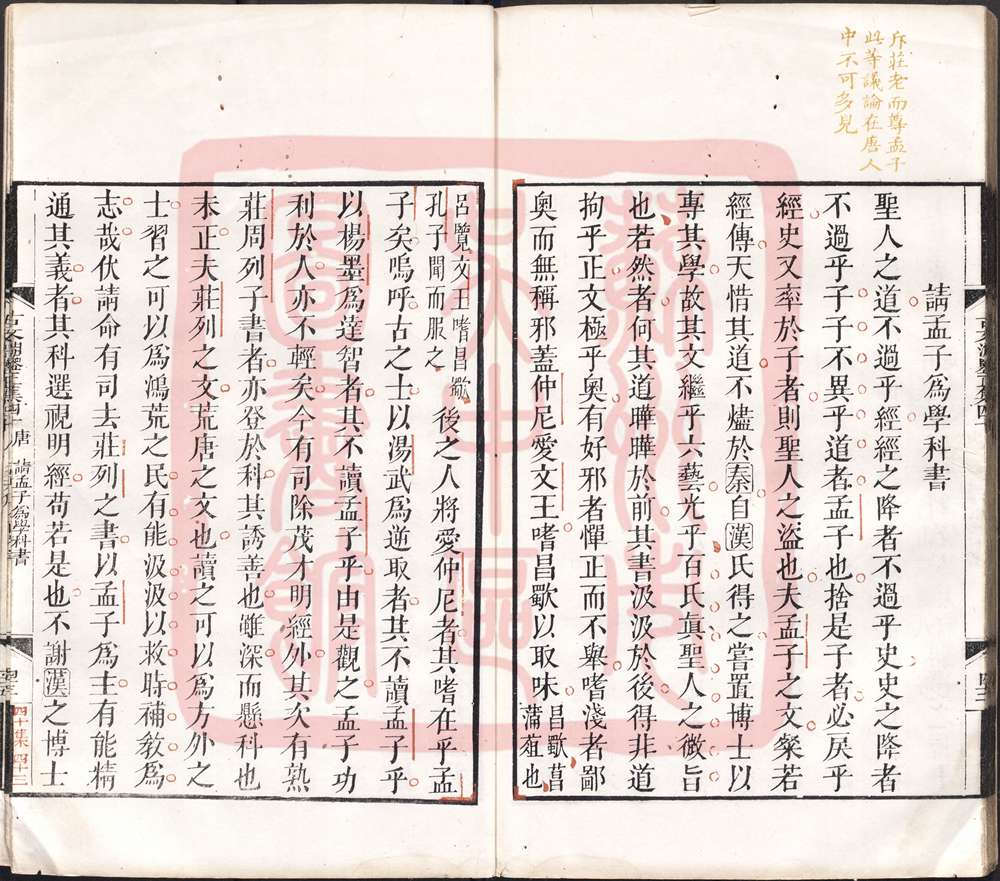 斥莊老而尊孟子
此等議論在唐人
中不可多見
請孟子爲學科書
聖人之道不過乎經經之降者不過乎史史之降者
不過乎子子不異乎道者孟子也捨是子者必戾乎
經史又率於子者則聖人之盜也夫孟子之文粲若
經傳天惜其道不燼於秦自漢氏得之嘗置博士以
專其學故其文繼乎六藝光乎百氏眞聖人之微旨
也若然者何其道曄曄於前其書汲汲於後得非道
拘乎正文極乎奧有好邪者憚正而不舉嗜淺者鄙
奧而無稱邪蓋仲尼愛文王嗜昌歜以取味昌歜菖蒲葅也
呂覽文王嗜昌歜孔子聞而服之後之人將愛仲尼者其嗜在乎孟
子矣嗚呼古之士以湯武爲逆取者其不讀孟子乎
以楊墨爲達智者其不讀孟子乎由是觀之孟子功
利於人亦不輕矣今有司除茂才明經外其次有熟
莊周列子書者亦登於科其誘善也雖深而懸科也
未正夫莊列之文荒唐之文也讀之可以爲方外之
士習之可以爲鴻荒之民有能汲汲以救時補敎爲
志哉伏請命有司去莊列之書以孟子爲主有能精
通其義者其科選視明經苟若是也不謝漢之博士
唐 請孟子爲學科書
四十集 四十三